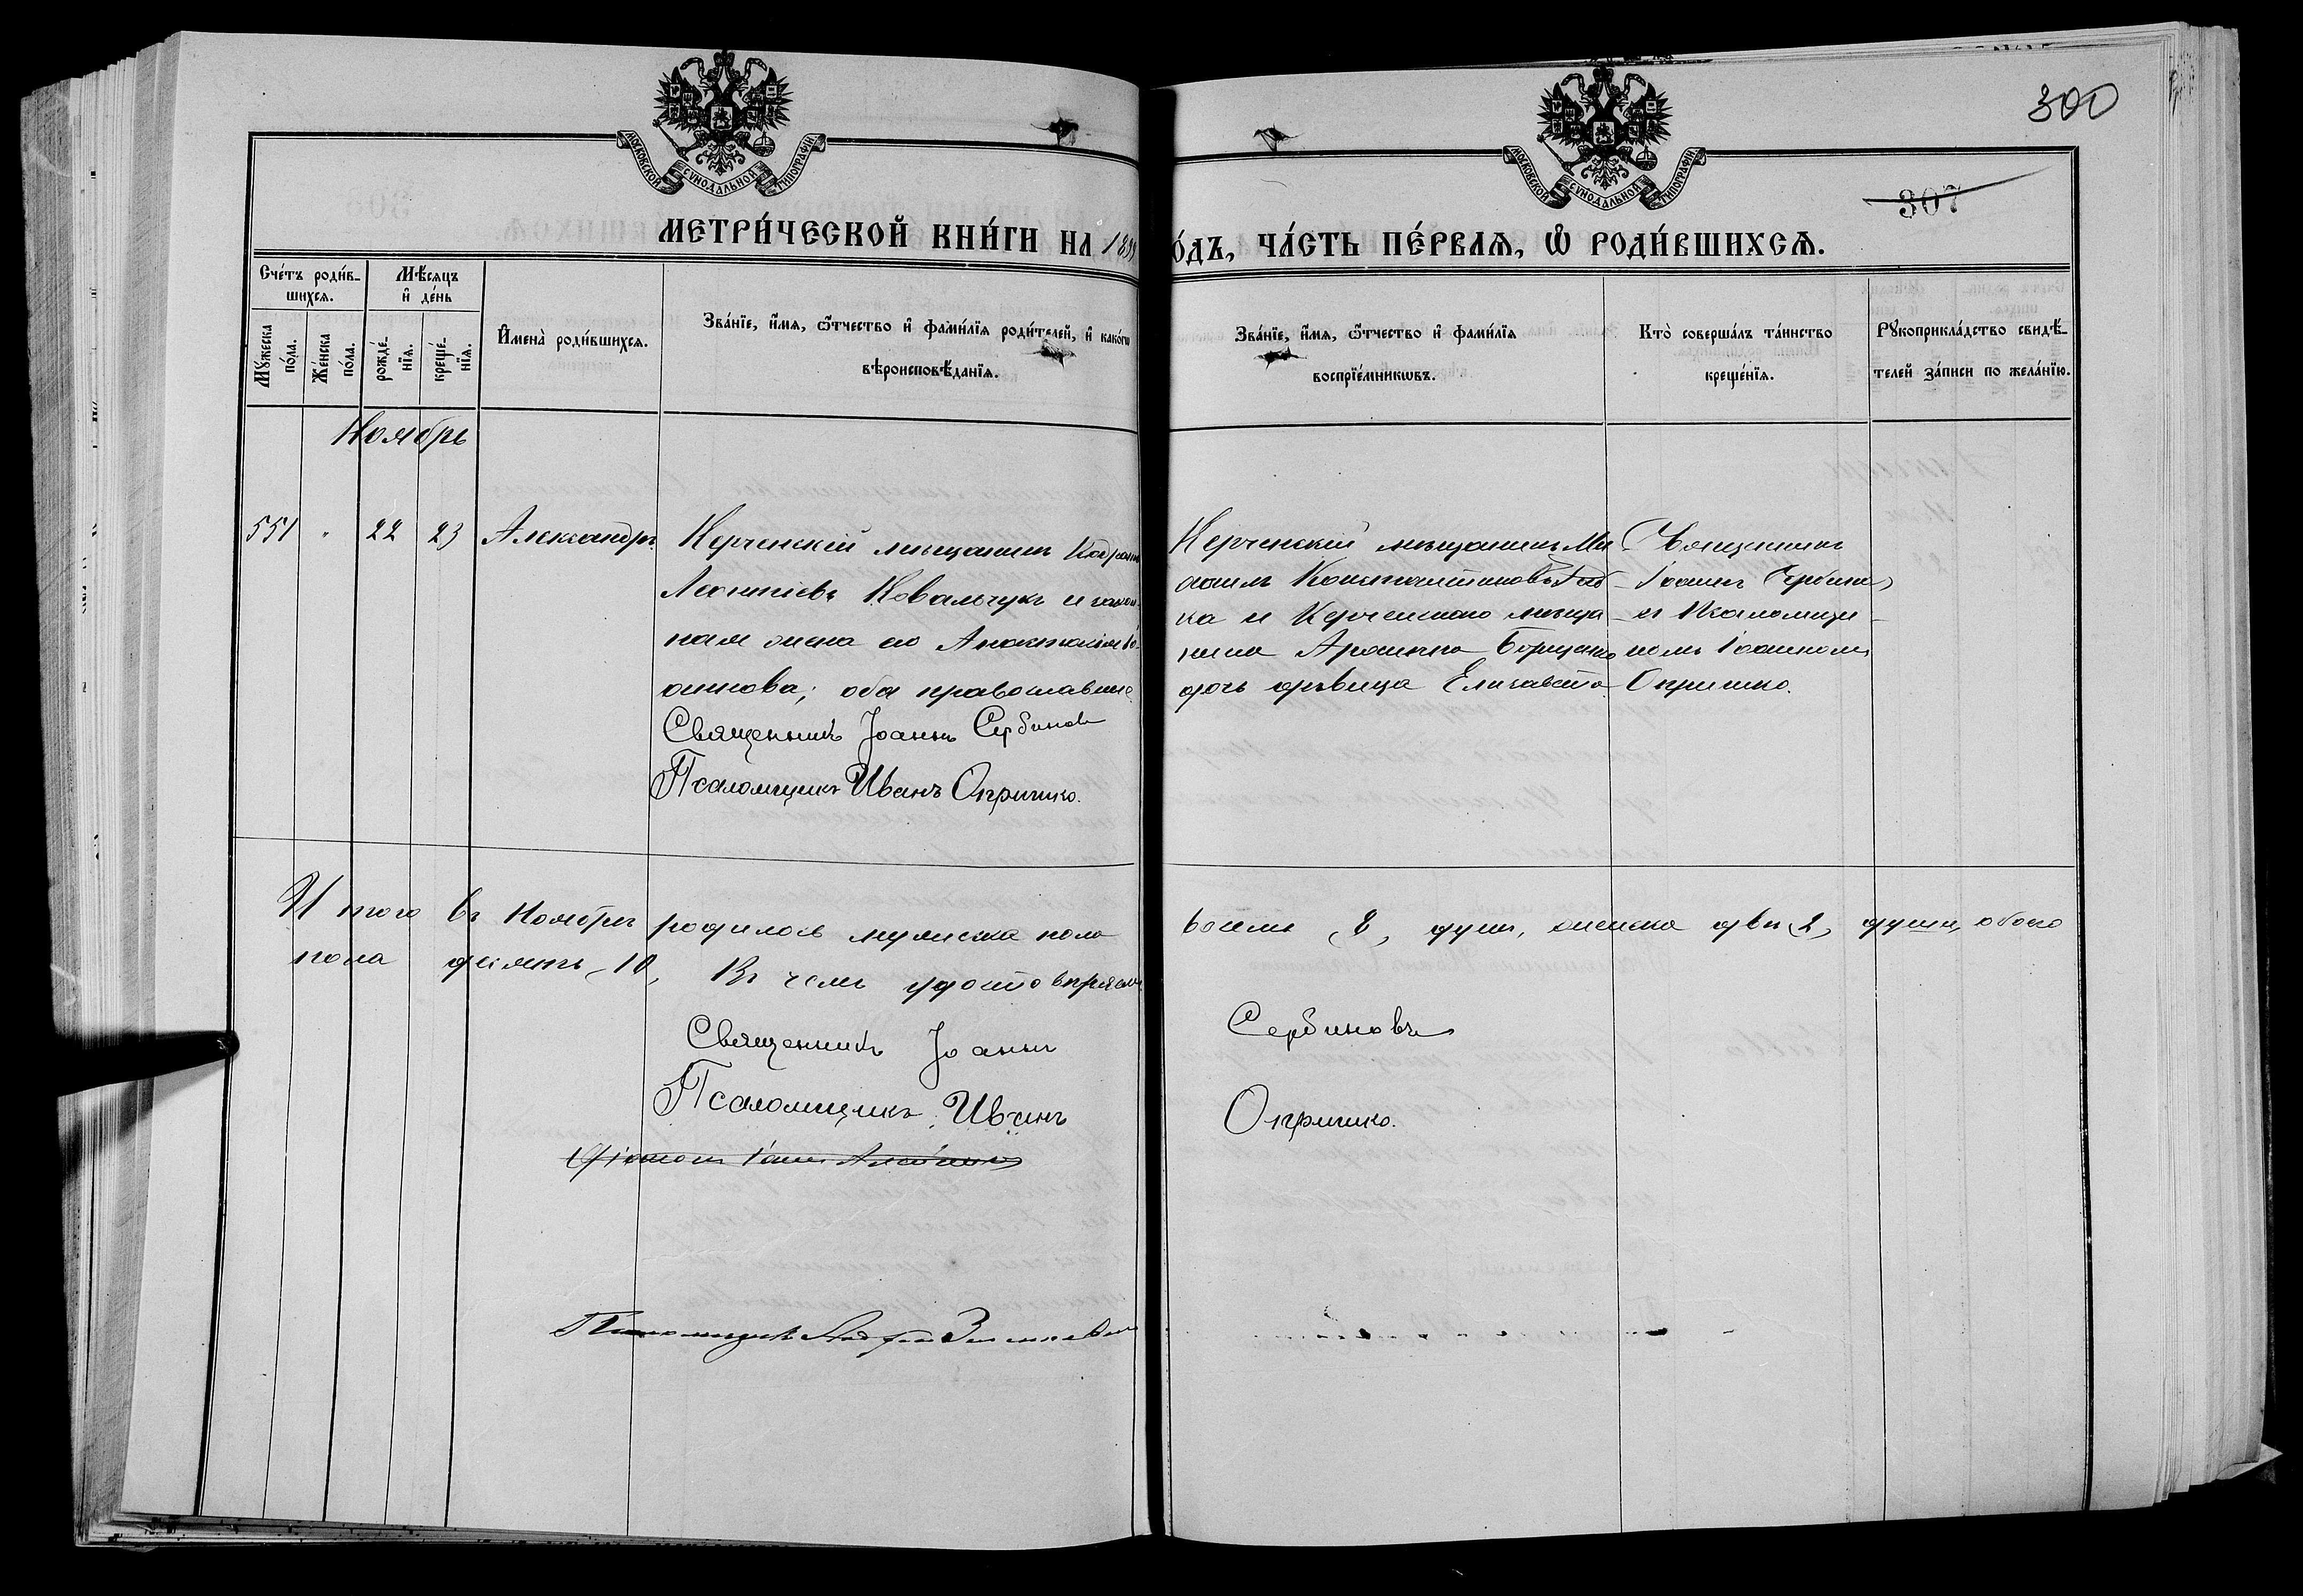 МОСКОВСКОЙ СѴНОДАЛЬНОЙ ТИПОГРАФІИ.
МОСКОВСКОЙ СѴНОДАЛЬНОЙ ТИПОГРАФІИ.
300
307
МЕТРИ́ЧЕСКОЙ КНИ́ГИ НА 1899
О́ДЪ, ЧА́СТЬ ПЕ́РВАѦ, Ѽ РОДИ́ВШИХСѦ.
Сче́тъ роди́в-
шихсѧ.
Мꙋжеска
по́ла.
Же́нска
по́ла.
Мѣ́сѧцъ
и҆ де́нь
рожде́-
нїѧ.
креще́-
нїѧ.
И҆мена̀ роди́вшихсѧ.
Зва́нїе, и҆́мѧ, ѻ҆́тчество и҆ фами́лїѧ роди́телей, и҆ како́гѡ
вѣроисповѣ́данїѧ.
Зва́нїе, и҆́мѧ, ѻ҆́тчество и҆ фами́лїѧ
воспрїе́мникѡвъ.
Кто̀ соверша́лъ та́инство
креще́нїѧ.
Рꙋкоприкла́дство свидѣ́-
телей за́писи по жела́нїю.
Ноябрь
551 " 22 23 Александръ
Керченскій мѣщанинъ
Леонтіевъ Ковальчукъ и закон-
ная жена его Анастасія
оба православные
Священникъ Іоаннъ Сербиновъ
Псаломщикъ Иванъ Опришко.
Керченскій мѣщанинъ Ми-
хаилъ Константиновъ
ка и Керченскаго мѣща-
нина Борщенко
дочь дѣвица Елизавета
Священникъ
Іоаннъ Сербиновъ
и Псаломщи-
комъ Іоанномъ
Опришко.
Итого въ Ноябрѣ родилось мужеска пола
восемь, 8, душъ, женска двѣ, 2, души, обоего
пола десять, 10, Въ чемъ удостовѣряемъ
Священникъ Іоаннъ
Сербиновъ
Псаломщикъ Иванъ
Опришко.
Псаломщикъ